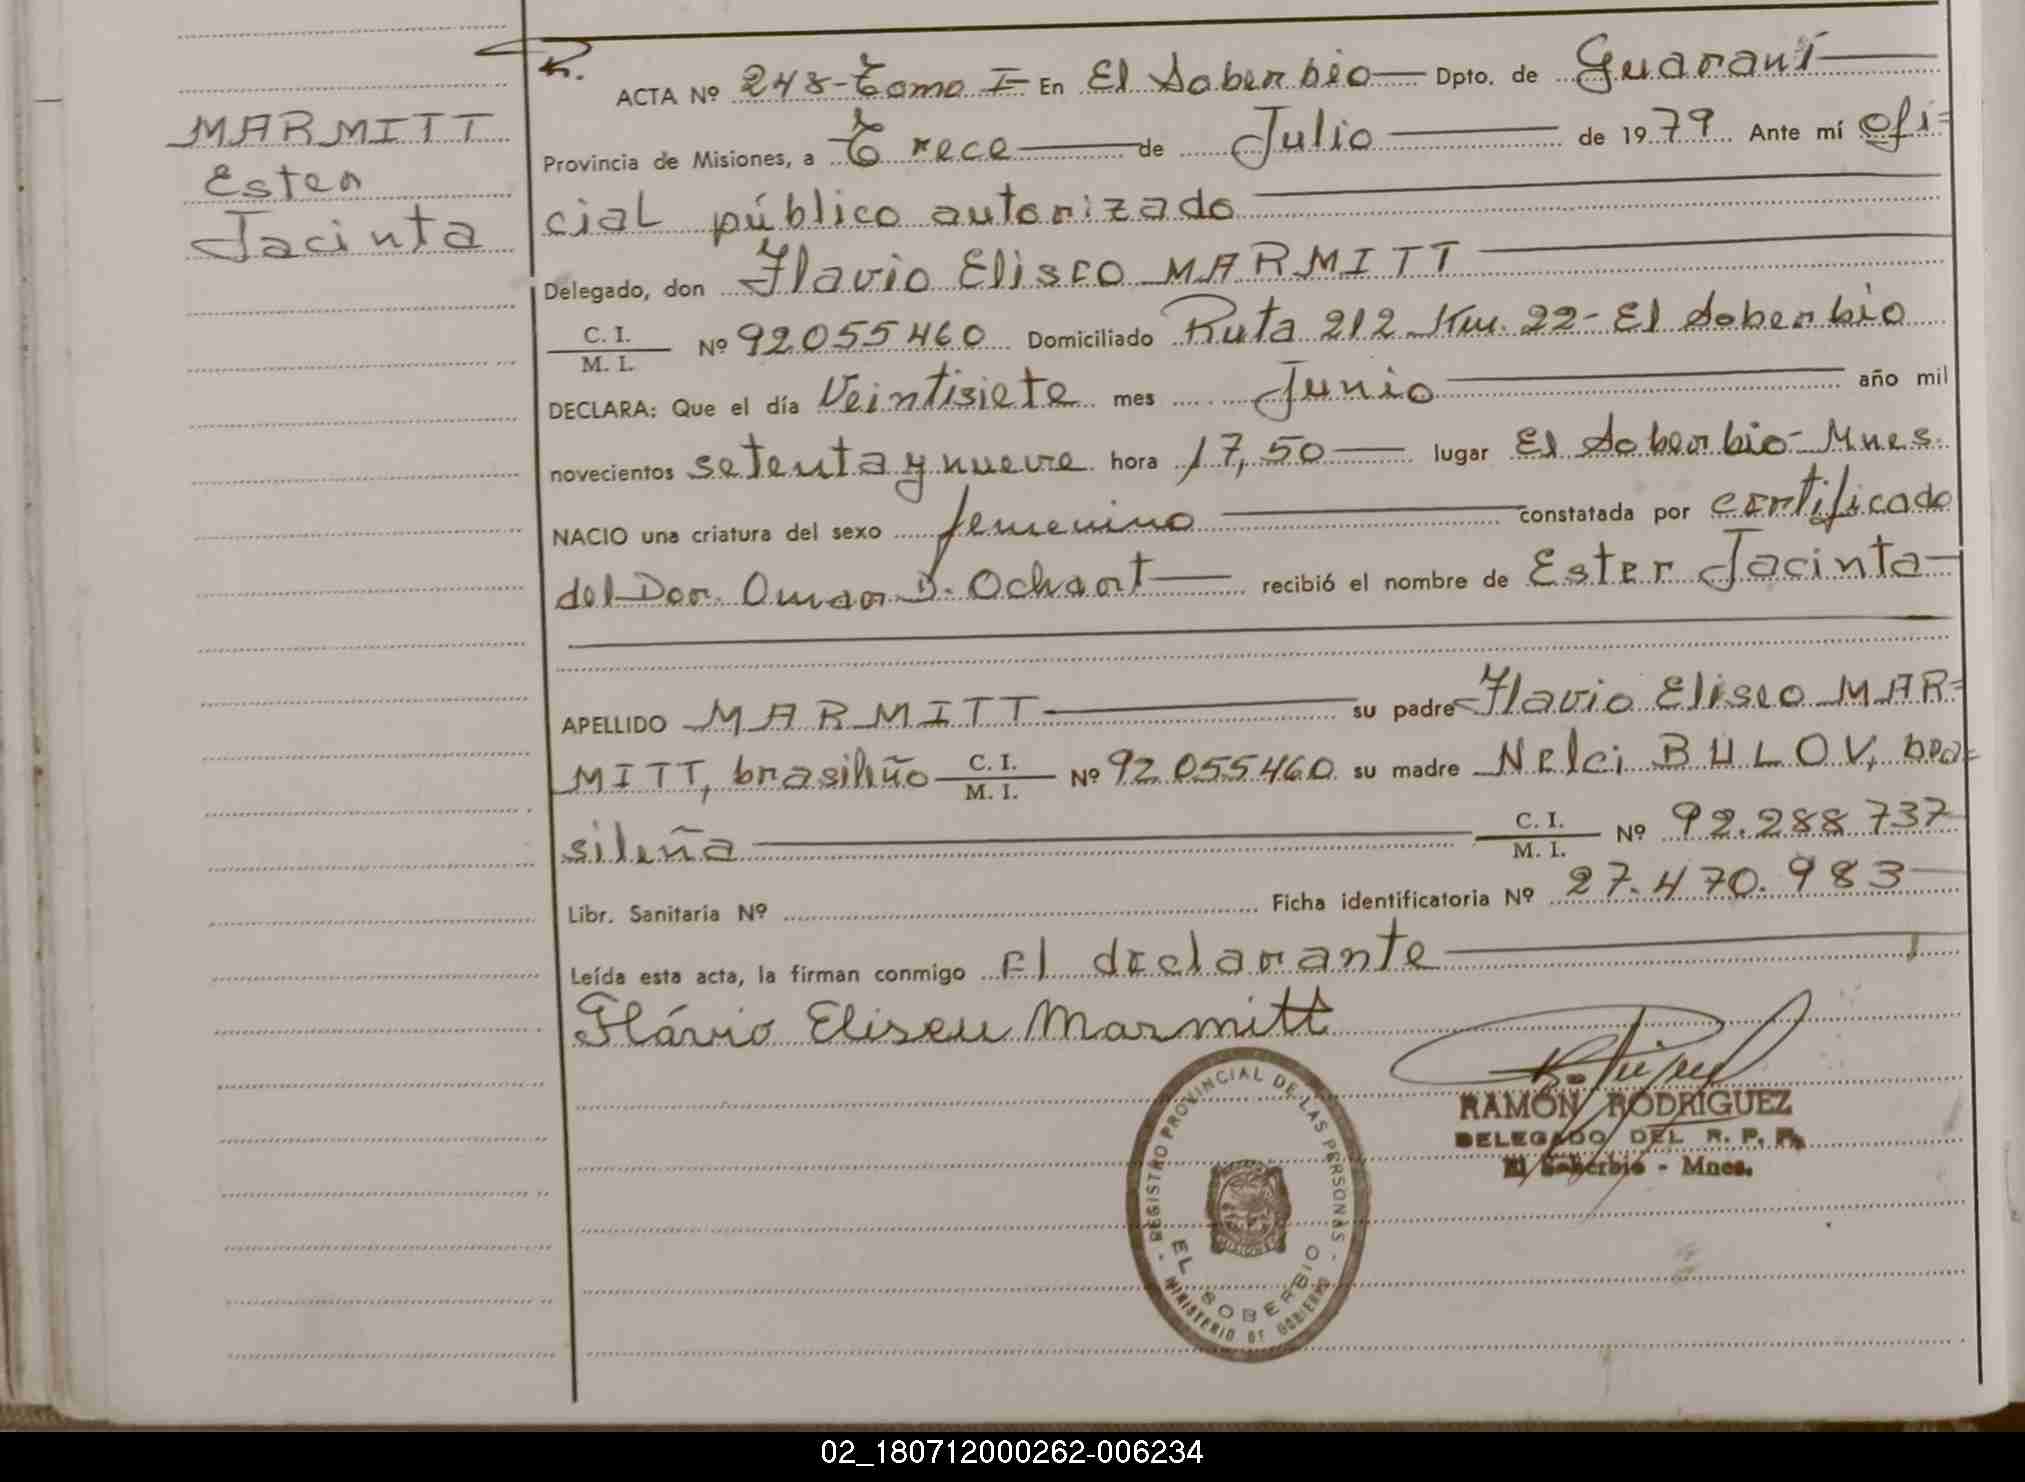 MARMITT
Ester
Jacinta
ACTA Nº 248-Tomo I- En El Soberbio Dpto. de Guaraní
Provincia de Misiones, a Trece de Julio de 1979 Ante mí ofi=
cial público autorizado
Delegado, don Flavio Eliseo MARMITT
C. I.
M. I. Nº 92055460 Domiciliado Ruta 212 Km. 22- El Soberbio
DECLARA: Que el día Veintisiete mes Junio año mil
novecientos setenta y nueve hora 17,50 lugar El Soberbio-Mnes.
NACIO una criatura del sexo femenino constatada por certificado
del Dor. Omar D. Ochaort recibió el nombre de Ester Jacinta
APELLIDO MARMITT su padre Flavio Eliseo MAR=
MITT, brasileño C. I. M. I. Nº 92.055460 su madre Nelci BULOV, bra=
sileña C. I. M. I. Nº 92.288737
Libr. Sanitaria Nº Ficha identificatoria Nº 27.470.983
Leída esta acta, la firman conmigo El declarante
Flávio Eliseu Marmitt
RAMÓN RODRIGUEZ
DELEGADO DEL R. P. P.
El Soberbio - Mnes.
- REGISTRO PROVINCIAL DE LAS PERSONAS -
EL SOBERBIO
MINISTERIO DE GOBIERNO
02_180712000262-006234